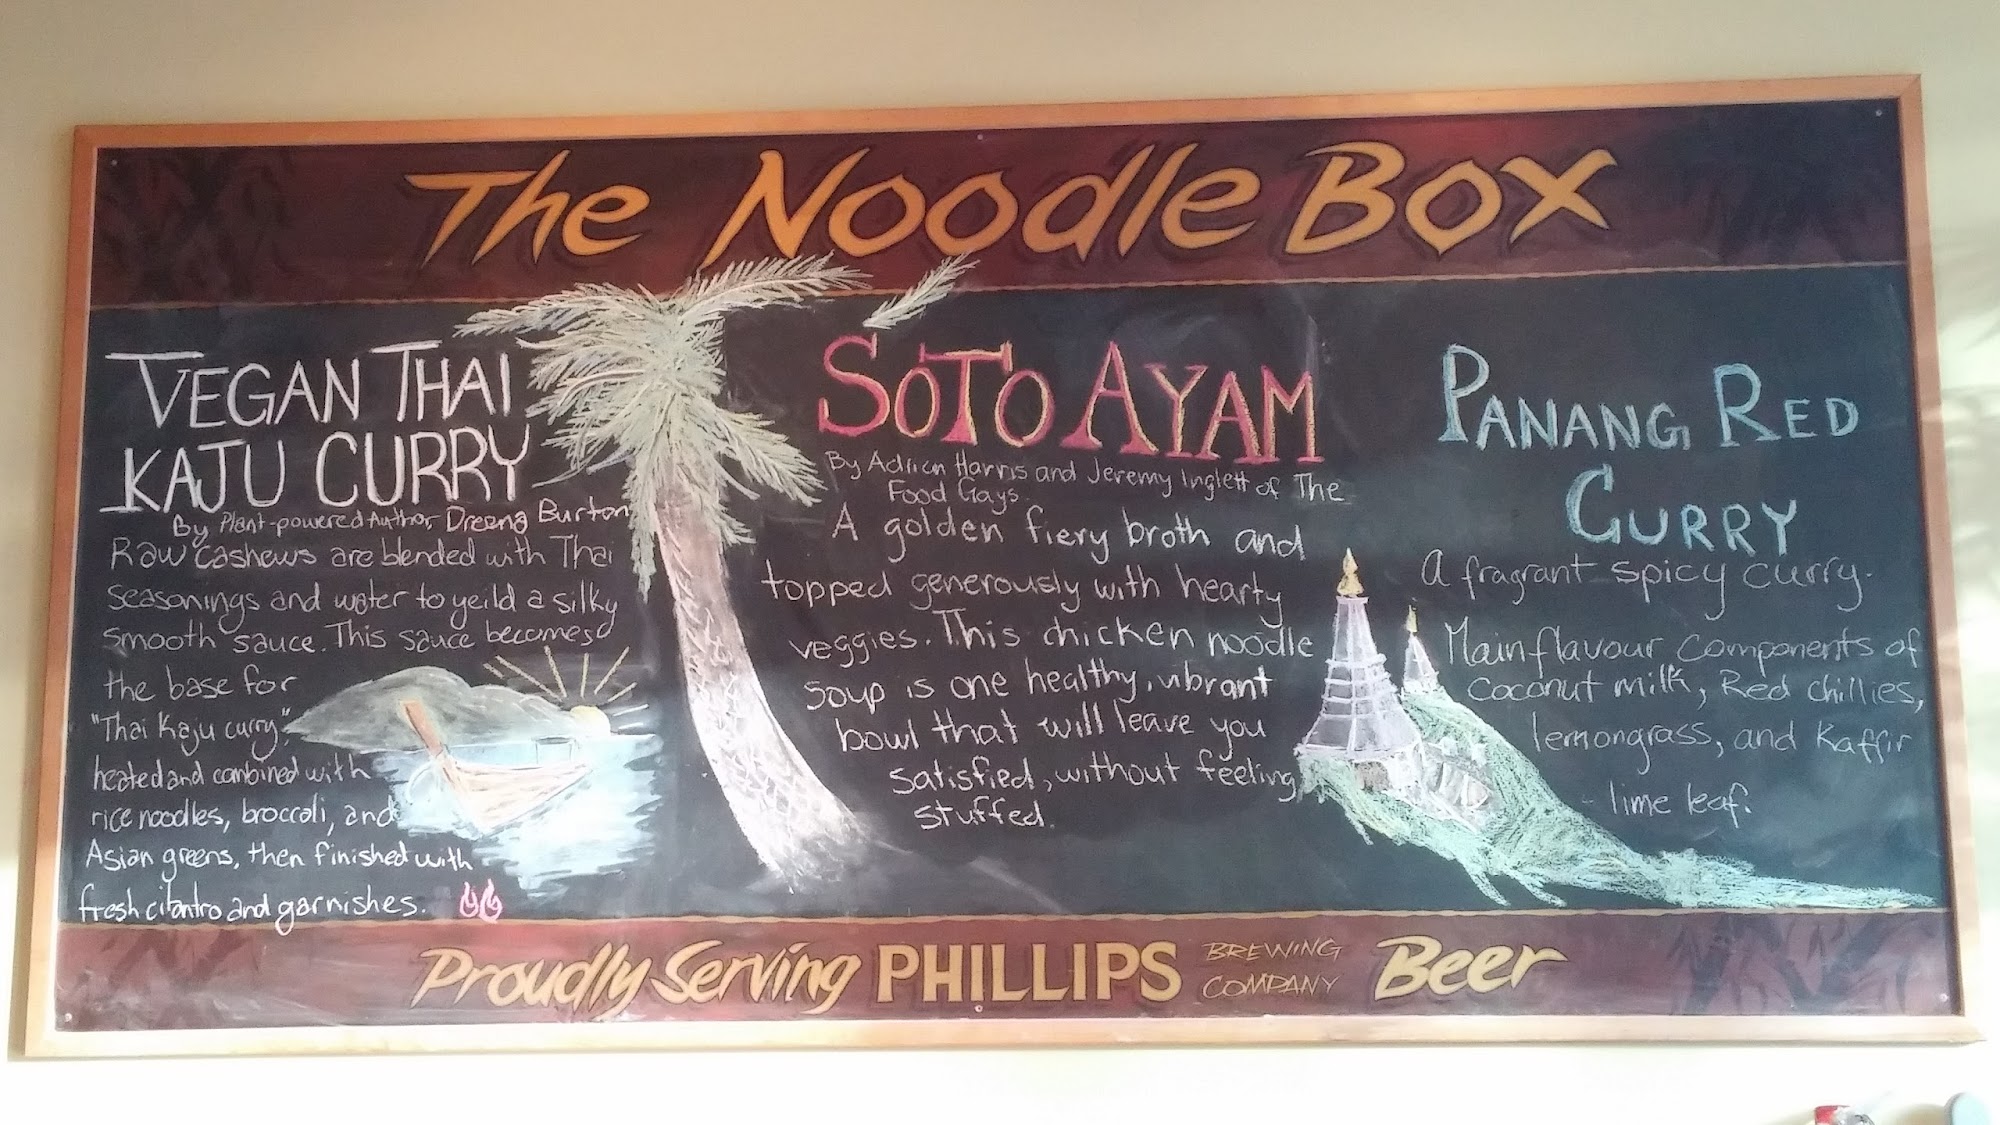 The Noodle Box
VEGAN THAI
KAJU CURRY
By Plant-powered Author Dreena Burton
Raw cashews are blended with Thai
seasonings and water to yeild a silky
smooth sauce. This sauce becomes
the base for
"Thai Kaju curry",
heated and combined with
rice noodles, broccoli, and
Asian greens, then finished with
fresh cilantro and garnishes.
SOTO AYAM
By Adrian Harris and Jeremy Inglett of The
Food Gays.
A golden fiery broth and
topped generously with hearty
veggies. This chicken noodle
soup is one healthy, vibrant
bowl that will leave you
satisfied, without feeling
stuffed.
PANANG RED
CURRY
A fragrant spicy curry.
Main flavour components of
coconut milk, Red chillies,
lemongrass, and Kaffir
lime leaf.
Proudly Serving PHILLIPS BREWING COMPANY Beer